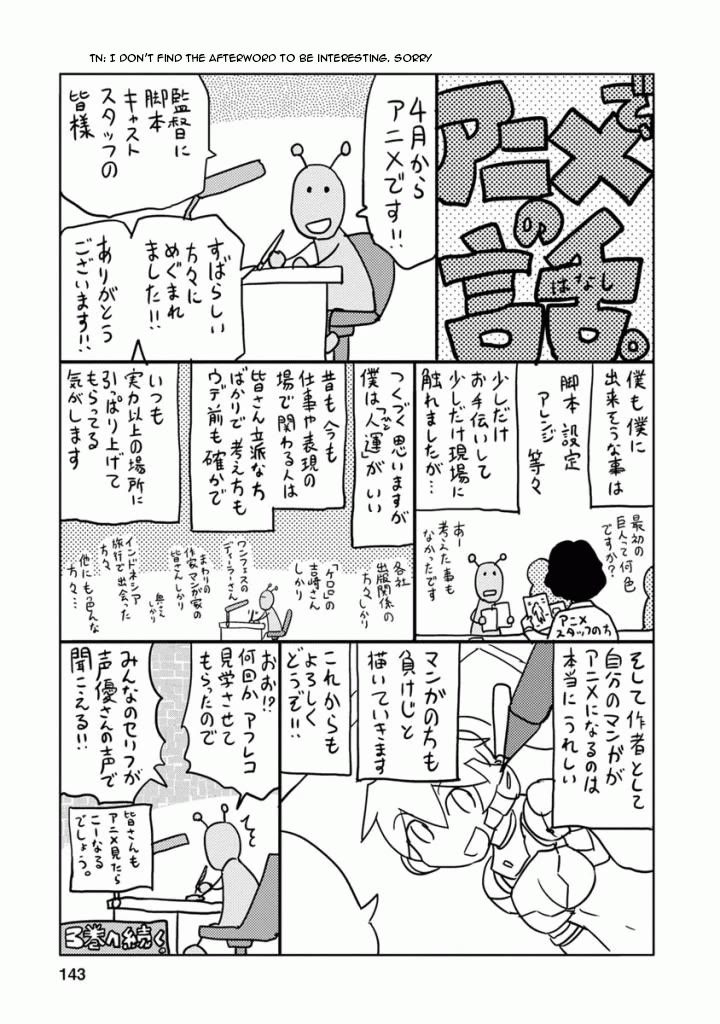 TN: I DON'T FIND THE AFTERWORD TO BE INTERESTING. SORRY
で、
アニメ
の
話。
はなし
4月から
アニメです!!
監督に
脚本
キャスト
スタッフの
皆様
すばらしい
方々に
めぐまれ
ました!!
ありがとう
ございます!!
僕も僕に
出来そうな事は
脚本 設定
アレンジ
等々
少しだけ
お手伝いして
少しだけ現場に
触れましたが…
最初の
巨人って何色
ですか?
あー
考えた事も
なかったです
アニメ
スタッフの方
つくづく思いますが
僕は「人運」がいい
昔も今も
仕事や表現の
場で関わる人は
皆さん立派な方
ばかりで考え方も
ウデ前も確かで
いつも
実力以上の場所に
引っぱり上げて
もらってる
気がします
各社
出版関係の
方々しかり
「ケロロ」の
吉崎さん
しかり
ワンフェスの
ディーラーさん
まわりの
作家マンガ家の
皆さんしかり
しかり
インドネシア
旅行で出会った
方々
他にも色んな
方々…
そして作者として
自分のマンガが
アニメになるのは
本当にうれしい
マンガの方も
負けじと
描いていきます
これからも
よろしく
どうぞ!!
おお!?
何回かアフレコ
見学させて
もらったので
みんなのセリフが
声優さんの声で
聞こえる!!
皆さんも
アニメ見たら
こーなる
でしょう。
3巻へ続く。
143